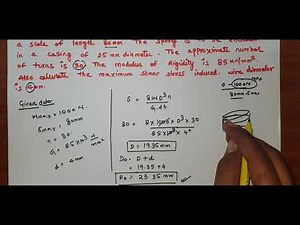 a scale of length 80mm. The spring is to be enclosed
in a casing of 25 mm diameter. The approximate number
of turns is 30. The modulus of Rigidity is 85 kN/mm².
Also calculate the maximum shear stress induced. wire diameter
is 4mm.
Given data:
Wmax = 1000 N.
δmax = 80mm
n = 30
G = 85 × 10³ N/mm²
d = 4mm
δ = 8WD³n / G.d⁴
80 = 8 × 1000 × D³ × 30 / 85 × 10³ × 4⁴
D = 19.35mm
D₀ = D + d
= 19.35 + 4
D₀ = 23.35 mm
0 - 1000N
80mm